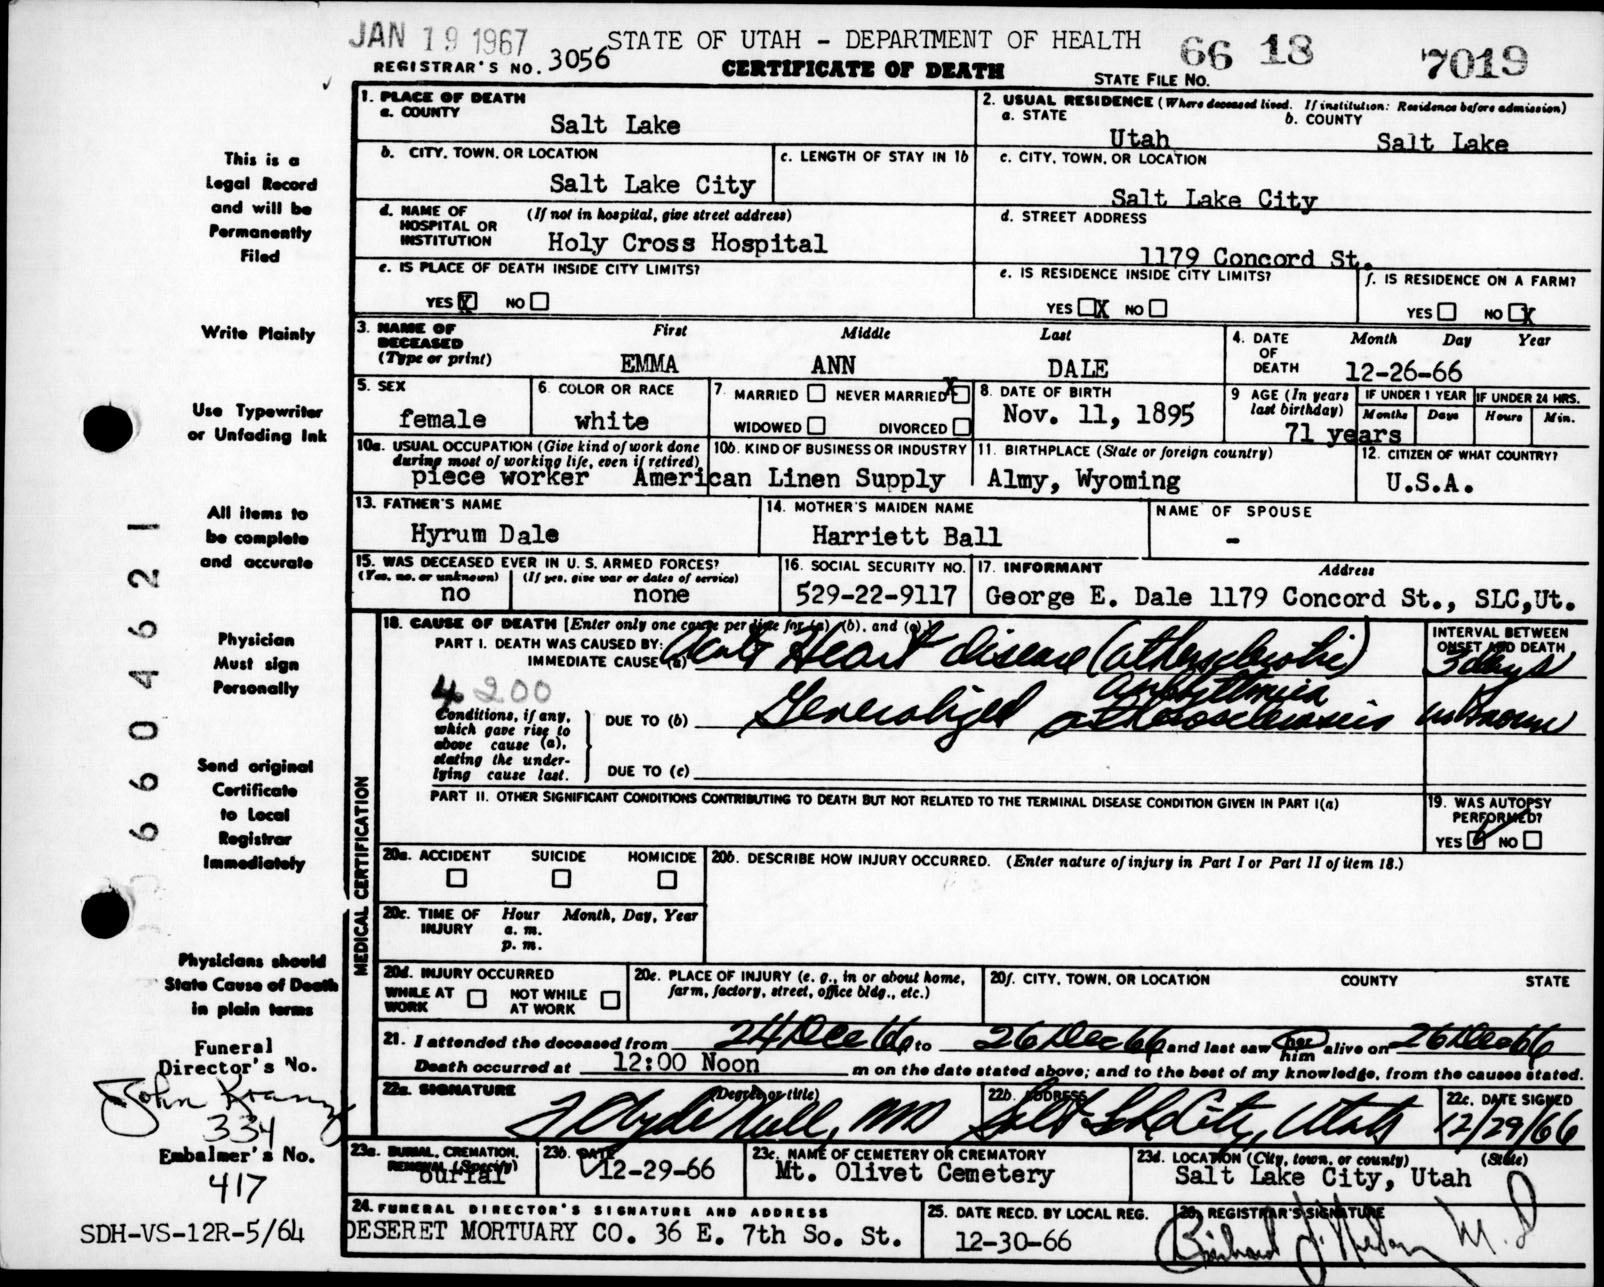 JAN 19 1967
STATE OF UTAH - DEPARTMENT OF HEALTH
66 18 7019
REGISTRAR'S NO. 3056
CERTIFICATE OF DEATH
STATE FILE NO.
This is a
Legal Record
and will be
Permanently
Filed
Write Plainly
Use Typewriter
or Unfading Ink
All items to
be complete
and accurate
Physician
Must sign
Personally
Send original
Certificate
to Local
Registrar
Immediately
Physicians should
State Cause of Death
in plain terms
Funeral
Director's No.
John Kranz
334
Embalmer's No.
417
SDH-VS-12R-5/64
66 04621
1. PLACE OF DEATH
a. COUNTY
Salt Lake
2. USUAL RESIDENCE (Where deceased lived. If institution: Residence before admission)
a. STATE
Utah
b. COUNTY
Salt Lake
b. CITY, TOWN, OR LOCATION
Salt Lake City
c. LENGTH OF STAY IN 1b
c. CITY, TOWN, OR LOCATION
Salt Lake City
d. NAME OF HOSPITAL OR INSTITUTION
(If not in hospital, give street address)
Holy Cross Hospital
d. STREET ADDRESS
1179 Concord St.
e. IS PLACE OF DEATH INSIDE CITY LIMITS?
YES X NO
e. IS RESIDENCE INSIDE CITY LIMITS?
YES X NO
f. IS RESIDENCE ON A FARM?
YES NO X
3. NAME OF DECEASED (Type or print)
First Middle Last
EMMA ANN DALE
4. DATE OF DEATH
Month Day Year
12-26-66
5. SEX
female
6. COLOR OR RACE
white
7. MARRIED NEVER MARRIED X
WIDOWED DIVORCED
8. DATE OF BIRTH
Nov. 11, 1895
9 AGE (In years last birthday)
71 years
IF UNDER 1 YEAR
Months Days
IF UNDER 24 HRS.
Hours Min.
10a. USUAL OCCUPATION (Give kind of work done during most of working life, even if retired)
piece worker
10b. KIND OF BUSINESS OR INDUSTRY
American Linen Supply
11. BIRTHPLACE (State or foreign country)
Almy, Wyoming
12. CITIZEN OF WHAT COUNTRY?
U.S.A.
13. FATHER'S NAME
Hyrum Dale
14. MOTHER'S MAIDEN NAME
Harriett Ball
NAME OF SPOUSE
-
15. WAS DECEASED EVER IN U. S. ARMED FORCES?
(Yes, no, or unknown) (If yes, give war or dates of service)
no none
16. SOCIAL SECURITY NO.
529-22-9117
17. INFORMANT Address
George E. Dale 1179 Concord St., SLC,Ut.
MEDICAL CERTIFICATION
18. CAUSE OF DEATH [Enter only one cause per line for (a), (b), and (c)]
PART I. DEATH WAS CAUSED BY:
IMMEDIATE CAUSE (a) Acute Heart disease (atherosclerotic)
arrhythmia
INTERVAL BETWEEN ONSET AND DEATH
3 days
4 200
Conditions, if any, which gave rise to above cause (a), stating the underlying cause last.
DUE TO (b) Generalized atherosclerosis
unknown
DUE TO (c)
PART II. OTHER SIGNIFICANT CONDITIONS CONTRIBUTING TO DEATH BUT NOT RELATED TO THE TERMINAL DISEASE CONDITION GIVEN IN PART I(a)
19. WAS AUTOPSY PERFORMED?
YES NO
20a. ACCIDENT SUICIDE HOMICIDE
20b. DESCRIBE HOW INJURY OCCURRED. (Enter nature of injury in Part I or Part II of item 18.)
20c. TIME OF INJURY
Hour Month, Day, Year
a. m.
p. m.
20d. INJURY OCCURRED
WHILE AT WORK NOT WHILE AT WORK
20e. PLACE OF INJURY (e. g., in or about home, farm, factory, street, office bldg., etc.)
20f. CITY, TOWN, OR LOCATION COUNTY STATE
21. I attended the deceased from 24 Dec 66 to 26 Dec 66 and last saw her him alive on 26 Dec 66
Death occurred at 12:00 Noon m on the date stated above; and to the best of my knowledge, from the causes stated.
22a. SIGNATURE (Degree or title)
Clyde Null, MD
22b. ADDRESS
Salt Lk City, Utah
22c. DATE SIGNED
12/29/66
23a. BURIAL, CREMATION, REMOVAL (Specify)
burial
23b. DATE
12-29-66
23c. NAME OF CEMETERY OR CREMATORY
Mt. Olivet Cemetery
23d. LOCATION (City, town, or county) (State)
Salt Lake City, Utah
24. FUNERAL DIRECTOR'S SIGNATURE AND ADDRESS
DESERET MORTUARY CO. 36 E. 7th So. St.
25. DATE RECD. BY LOCAL REG.
12-30-66
26. REGISTRAR'S SIGNATURE
M.D